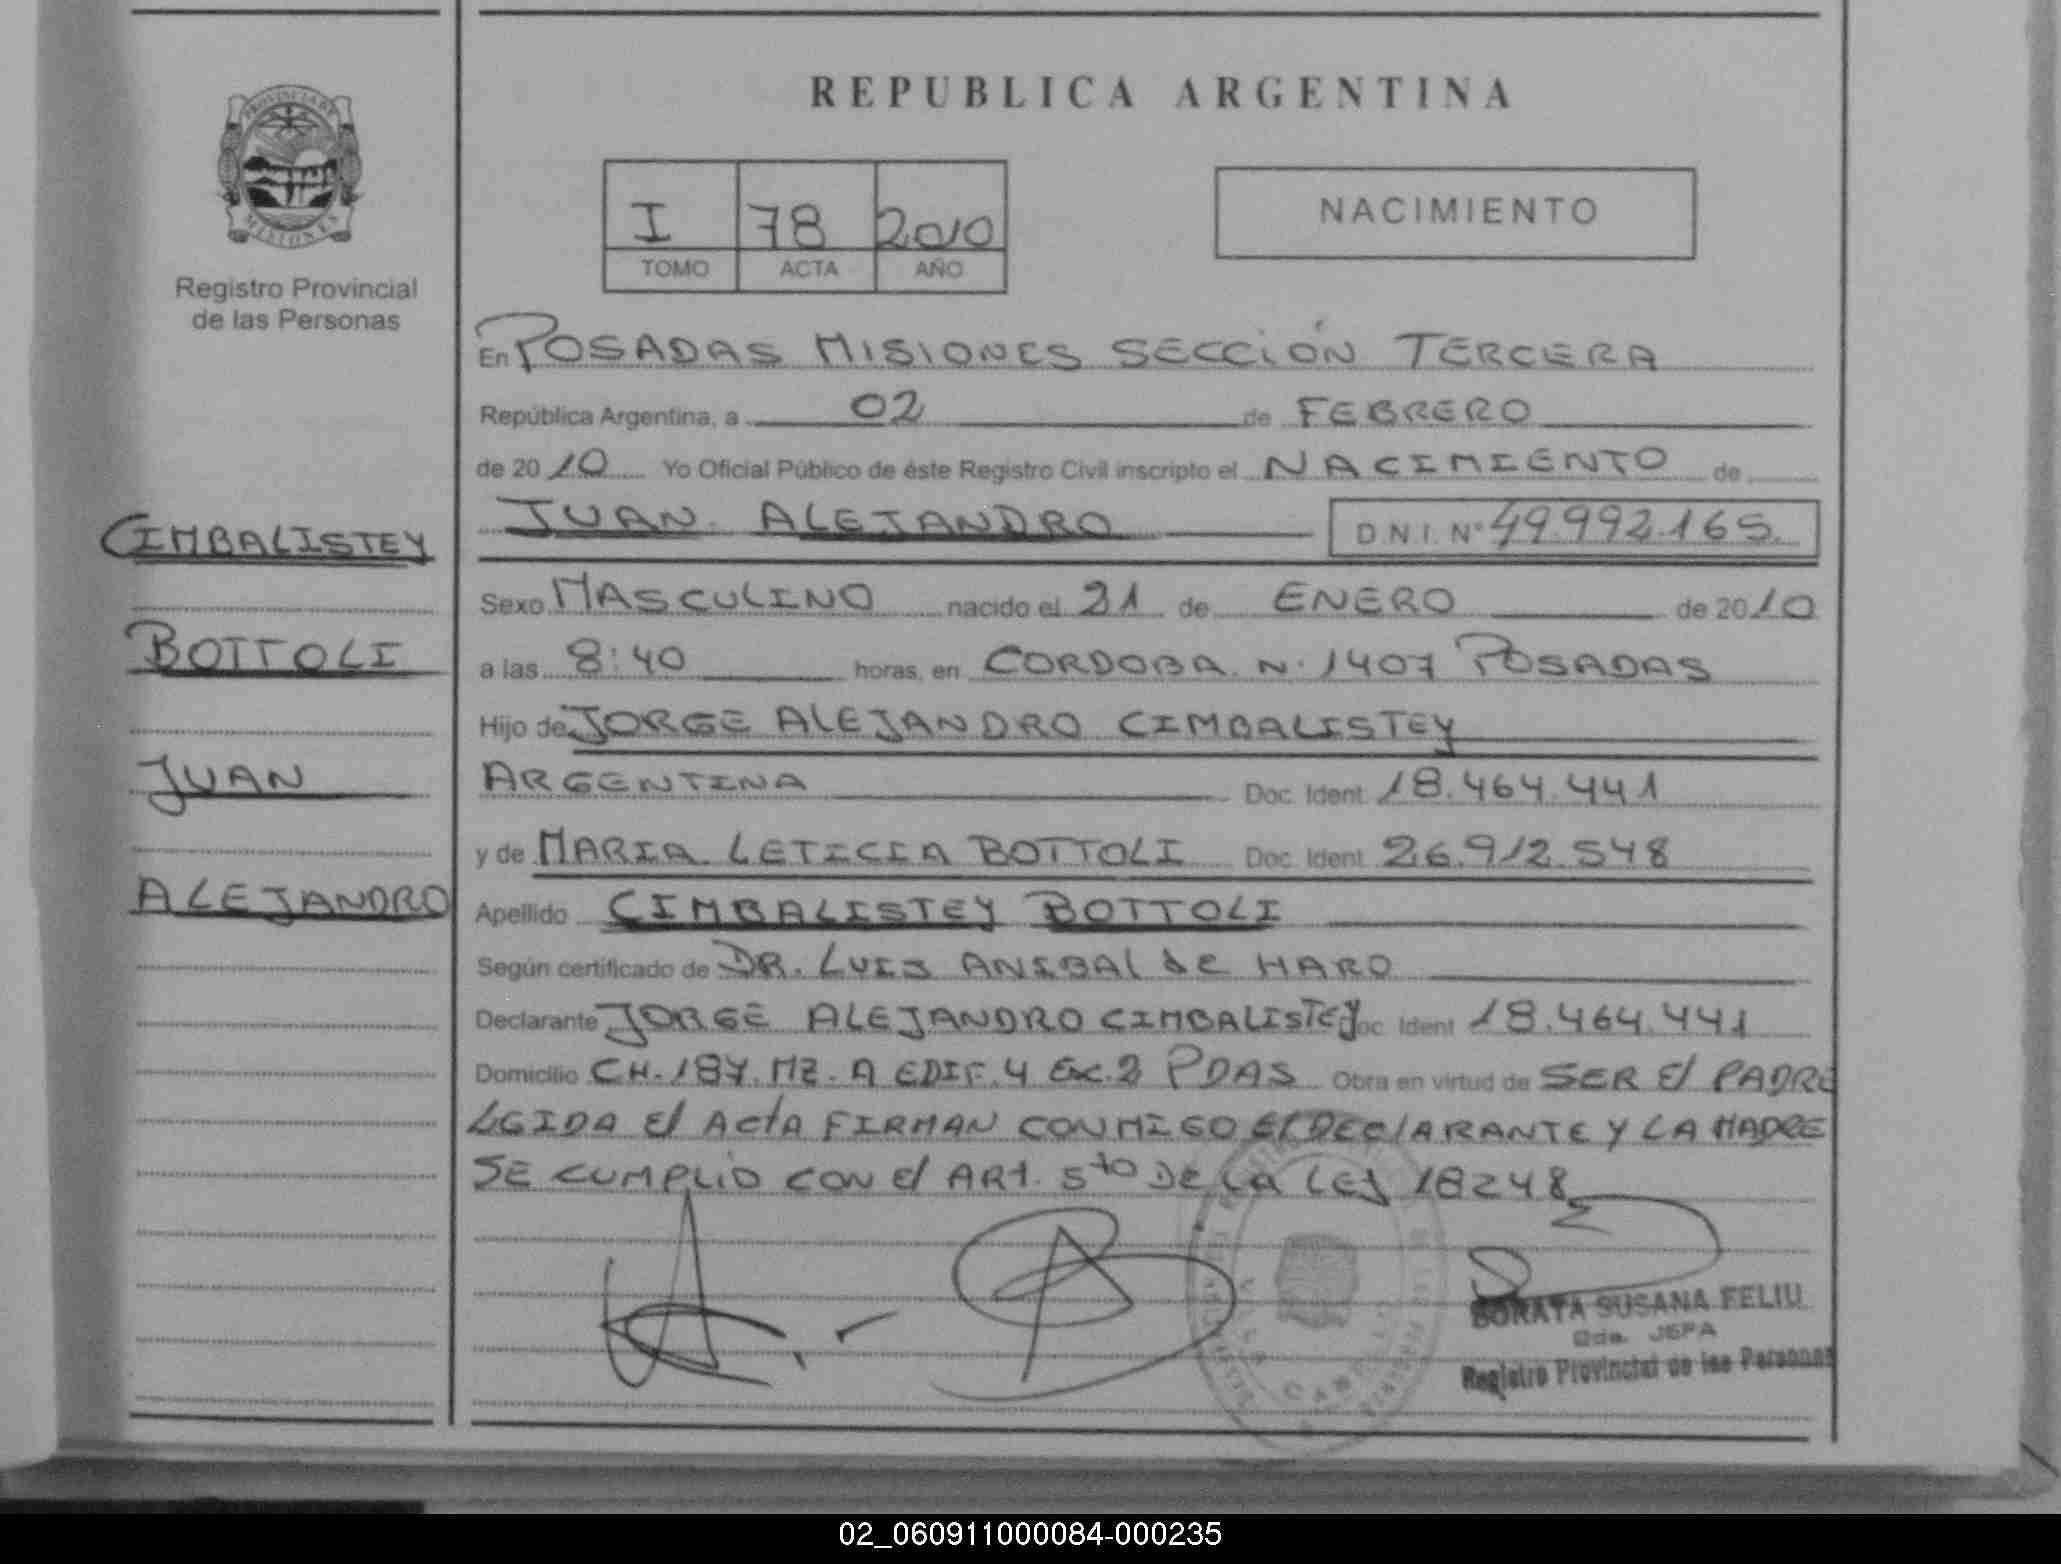 REPUBLICA ARGENTINA
PROVINCIA DE
MISIONES
Registro Provincial
de las Personas
I 78 2010
TOMO ACTA AÑO
NACIMIENTO
En POSADAS MISIONES SECCIÓN TERCERA
República Argentina, a 02 de FEBRERO
de 2010 Yo Oficial Público de éste Registro Civil inscripto el NACIMIENTO de
JUAN ALEJANDRO D.N.I. N° 49.992.165.
CIMBALISTEY
BOTTOLI
JUAN
ALEJANDRO
Sexo MASCULINO nacido el 21 de ENERO de 2010
a las 8:40 horas, en CORDOBA N. 1407 POSADAS
Hijo de JORGE ALEJANDRO CIMBALISTEY
ARGENTINA Doc. Ident. 18.464.441
y de MARIA LETICIA BOTTOLI Doc. Ident. 26.912.548
Apellido CIMBALISTEY BOTTOLI
Según certificado de DR. LUIS ANIBAL de HARO
Declarante JORGE ALEJANDRO CIMBALISTEY Doc. Ident 18.464.441
Domicilio CH. 187. MZ. A EDIF. 4 2 PDAS Obra en virtud de SER El PADRE
LEIDA El ActA FIRMAN CONMIGO El DEClARANTE Y LA MADRE
SE CUMPLIÓ CON el ARt. 5to DE LA LEY 18248
SUSANA FELIU
Registro Provincial de las Personas
02_060911000084-000235